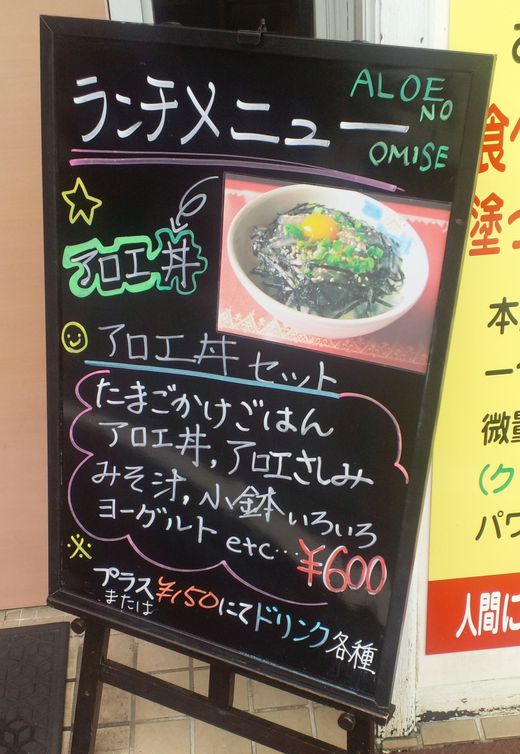 ランチメニュー
ALOE
NO
OMISE
アロエ丼
アロエ丼セット
たまごかけごはん
アロエ丼,アロエさしみ
みそ汁,小鉢いろいろ
ヨーグルト etc…¥600
※プラス¥150にてドリンク各種
または
食
塗
本
微量
(ク
パワ
人間に